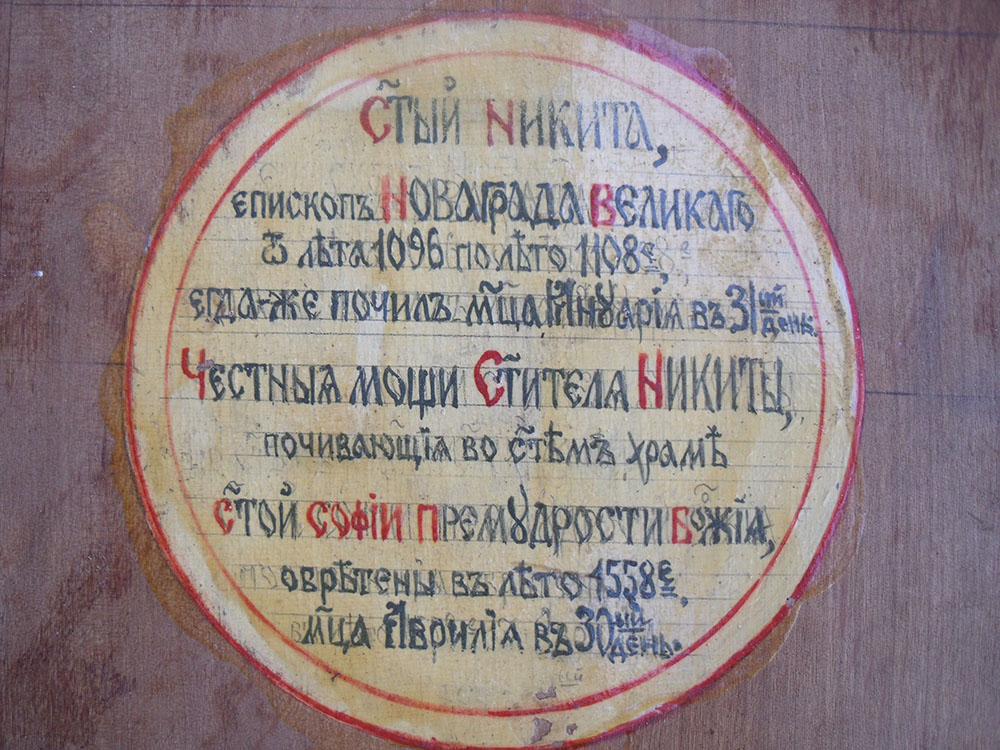 С҃тый Никита,
епископъ Новаграда Великаго
ѿ лѣта 1096 по лѣто 1108е,
егда-же почилъ м҃ца Іануарія въ 31ый день.
Честныя мощи С҃тителя Никиты,
почивающія во с҃тѣмъ храмѣ
с҃той Софіи Премудрости Божія,
обрѣтены въ лѣто 1558е,
м҃ца Априлія въ 30ый день.